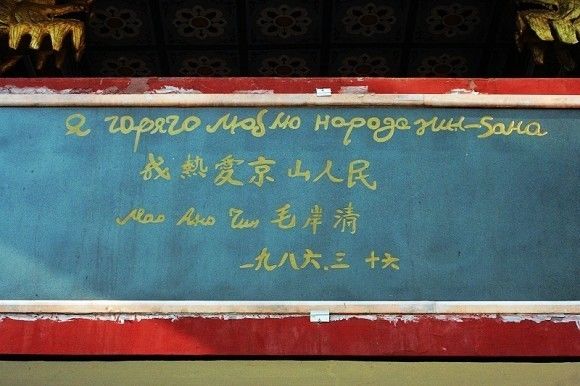 Я горячо люблю народа жин-бана
我熱愛京山人民
Мао Ано Чин 毛岸清
一九八六.三 十六